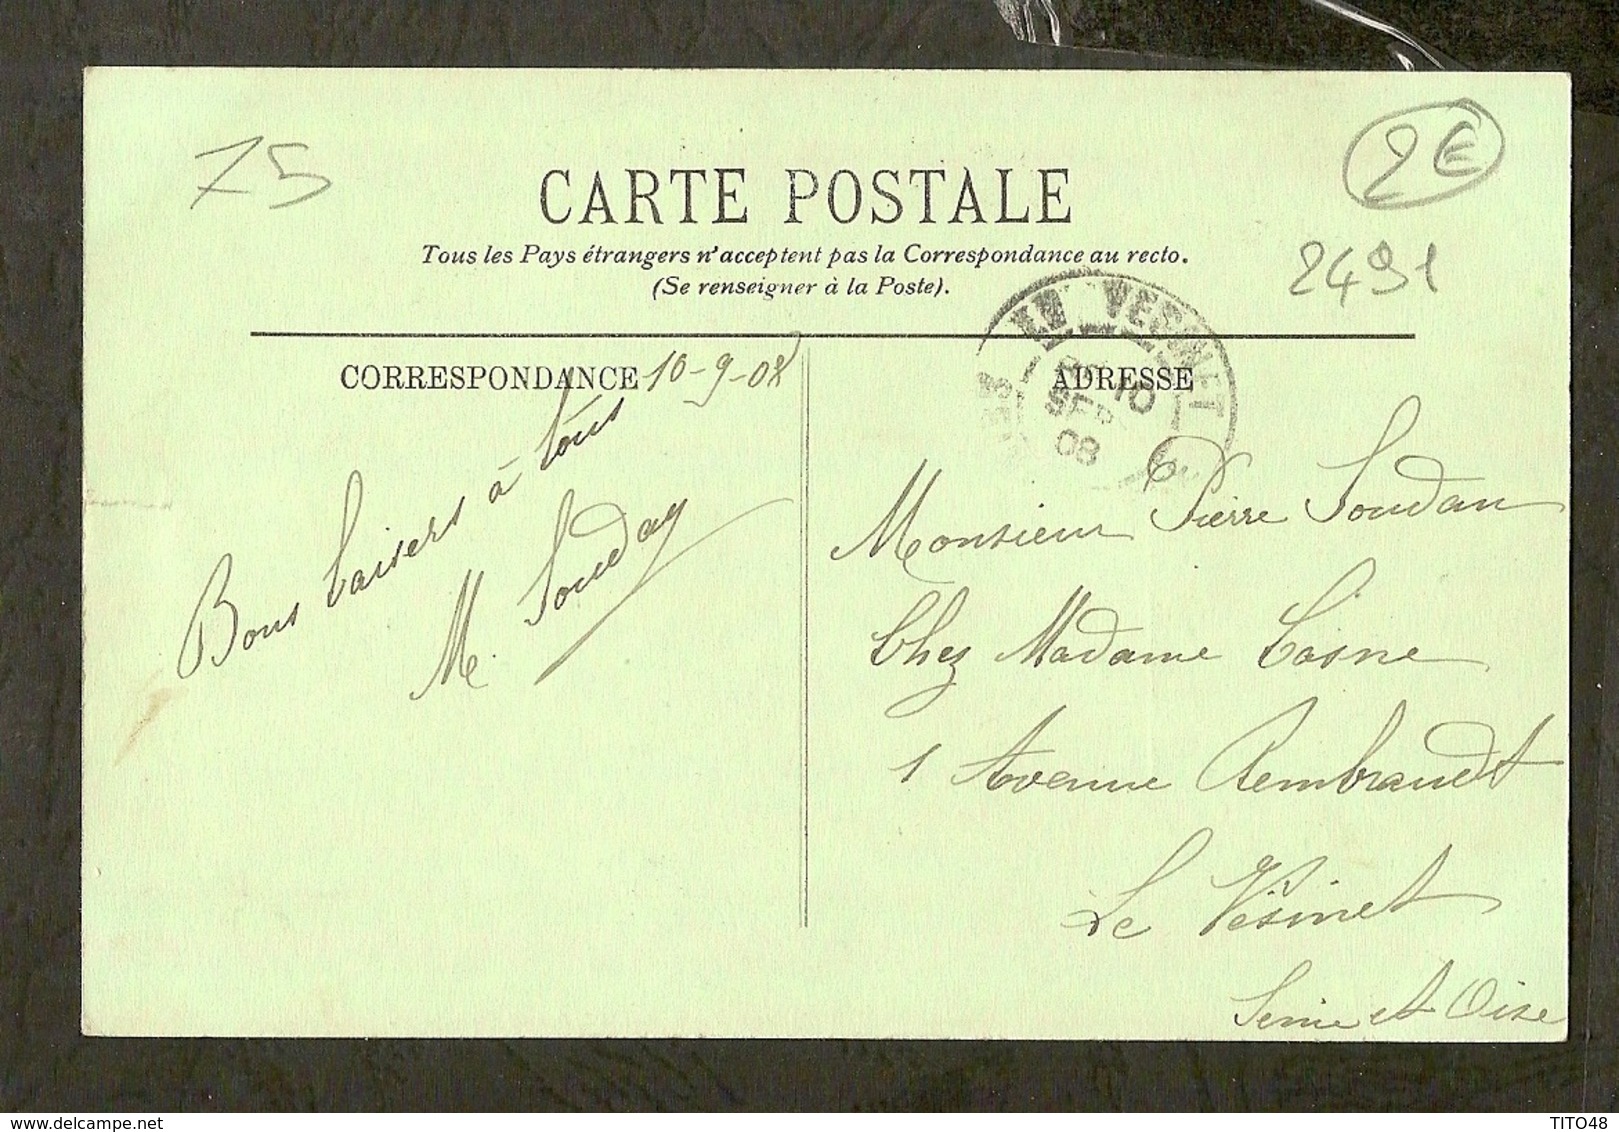 75
2€
2491
CARTE POSTALE
Tous les Pays étrangers n'acceptent pas la Correspondance au recto.
(Se renseigner à la Poste).
CORRESPONDANCE
10-9-08
Bons baisers à tous
M. Souday
ADRESSE
LE VESINET
10
SEP
08
Monsieur Pierre Soudan
Chez Madame
1 Avenue Rembrandt
Le Vésinet
Seine et Oise
TITO48